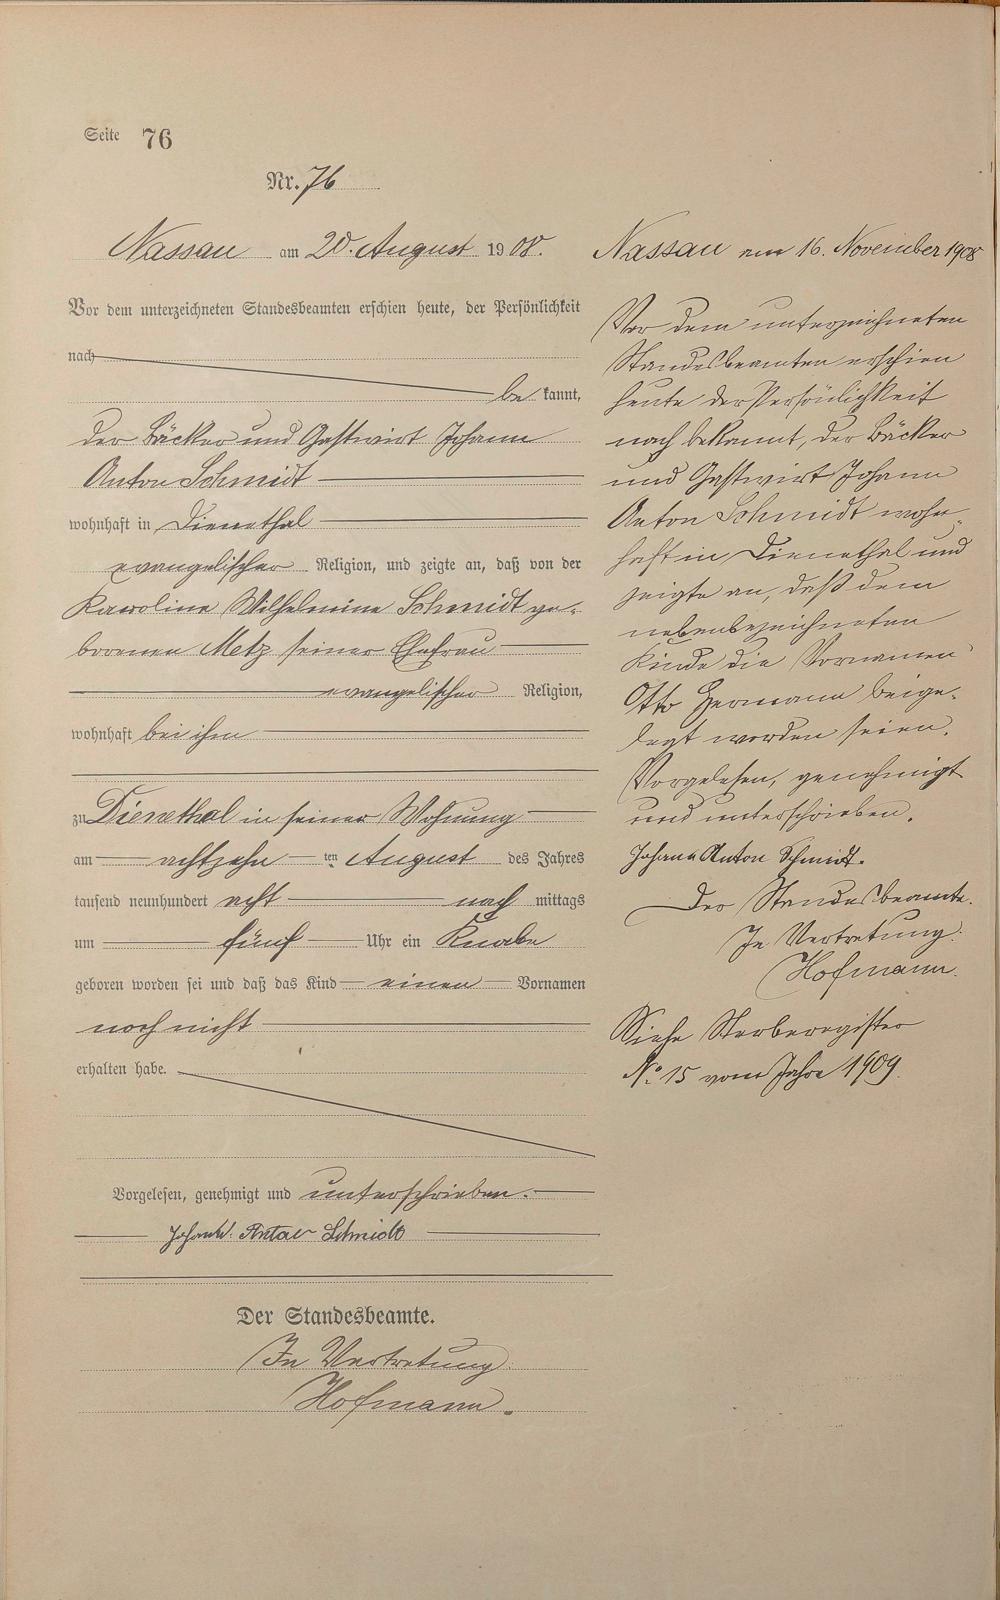 Seite 76
Nr. 76
Nassau am 20. August 1908.
Vor dem unterzeichneten Standesbeamten erschien heute, der Persönlichkeit
nach
be kannt,
der Bäcker und Gastwirt Johann
Anton Schmidt
wohnhaft in Dienethal
evangelischer Religion, und zeigte an, daß von der
Karoline Wilhelmine Schmidt ge-
borenen Metz seiner Ehefrau
evangelischer Religion,
wohnhaft bei ihm
zu Dienethal in seiner Wohnung
am achtzehn ten August des Jahres
tausend neunhundert acht nach mittags
um fünf Uhr ein Knabe
geboren worden sei und daß das Kind einen Vornamen
noch nicht
erhalten habe.
Vorgelesen, genehmigt und unterschrieben.
Johann Anton Schmidt
Der Standesbeamte.
In Vertretung.
Hofmann.
Nassau am 16. November 1908
Vor dem unterzeichneten
Standesbeamten erschien
heute der Persönlichkeit
nach bekannt, der Bäcker
und Gastwirt Johann
Anton Schmidt wohn-
haft in Dienethal und
zeigte an, daß dem
nebenbezeichneten
Kinde die Vornamen
Otto Hermann beige-
legt worden seien.
Vorgelesen, genehmigt
und unterschrieben.
Johann Anton Schmidt.
Der Standesbeamte.
In Vertretung.
Hofmann.
Siehe Sterberegister
No. 15 vom Jahre 1909